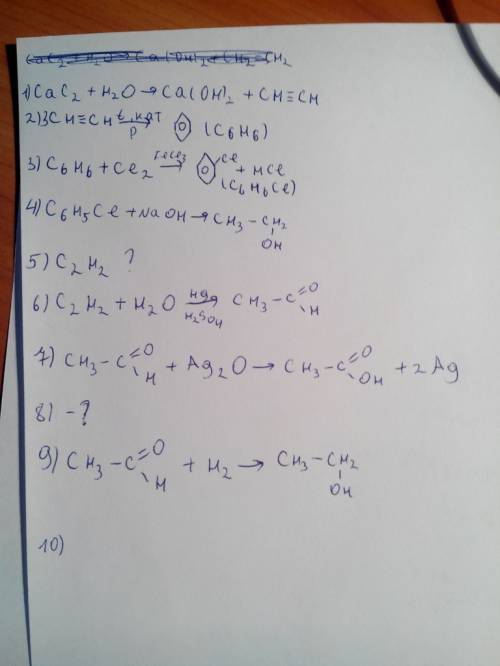 CaC₂ + H₂O → Ca(OH)₂ + CH₂ = CH₂
1) CaC₂ + H₂O → Ca(OH)₂ + CH≡CH
2) 3CH≡CH t, кат P → (C₆H₆)
3) C₆H₆ + Cl₂ FeCl₃ → Cl + HCl
(C₆H₆Cl)
4) C₆H₅Cl + NaOH → CH₃ – CH₂
OH
5) C₂H₂ ?
6) C₂H₂ + H₂O Hg H₂SO₄ → CH₃ – C = O H
7) CH₃ – C = O H + Ag₂O → CH₃ – C = O OH + 2Ag
8) – ?
9) CH₃ – C = O H + H₂ → CH₃ – CH₂
OH
10)